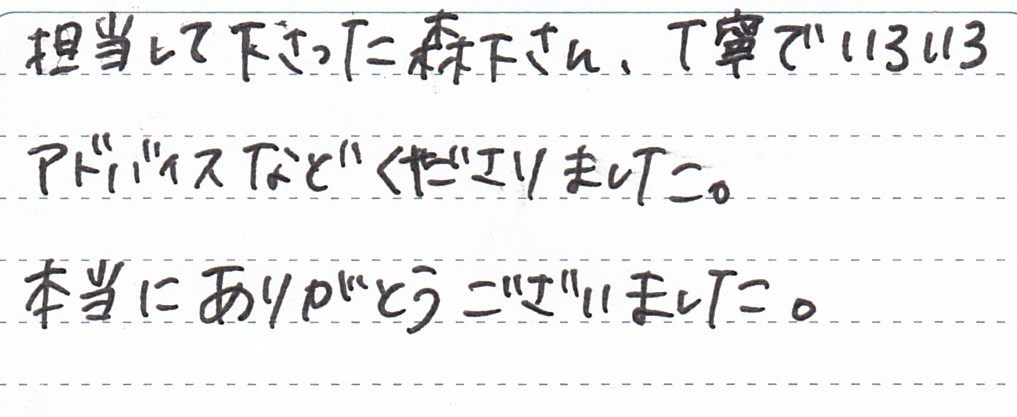 担当して下さった森下さん、丁寧でいろいろ
アドバイスなどくださりました。
本当にありがとうございました。